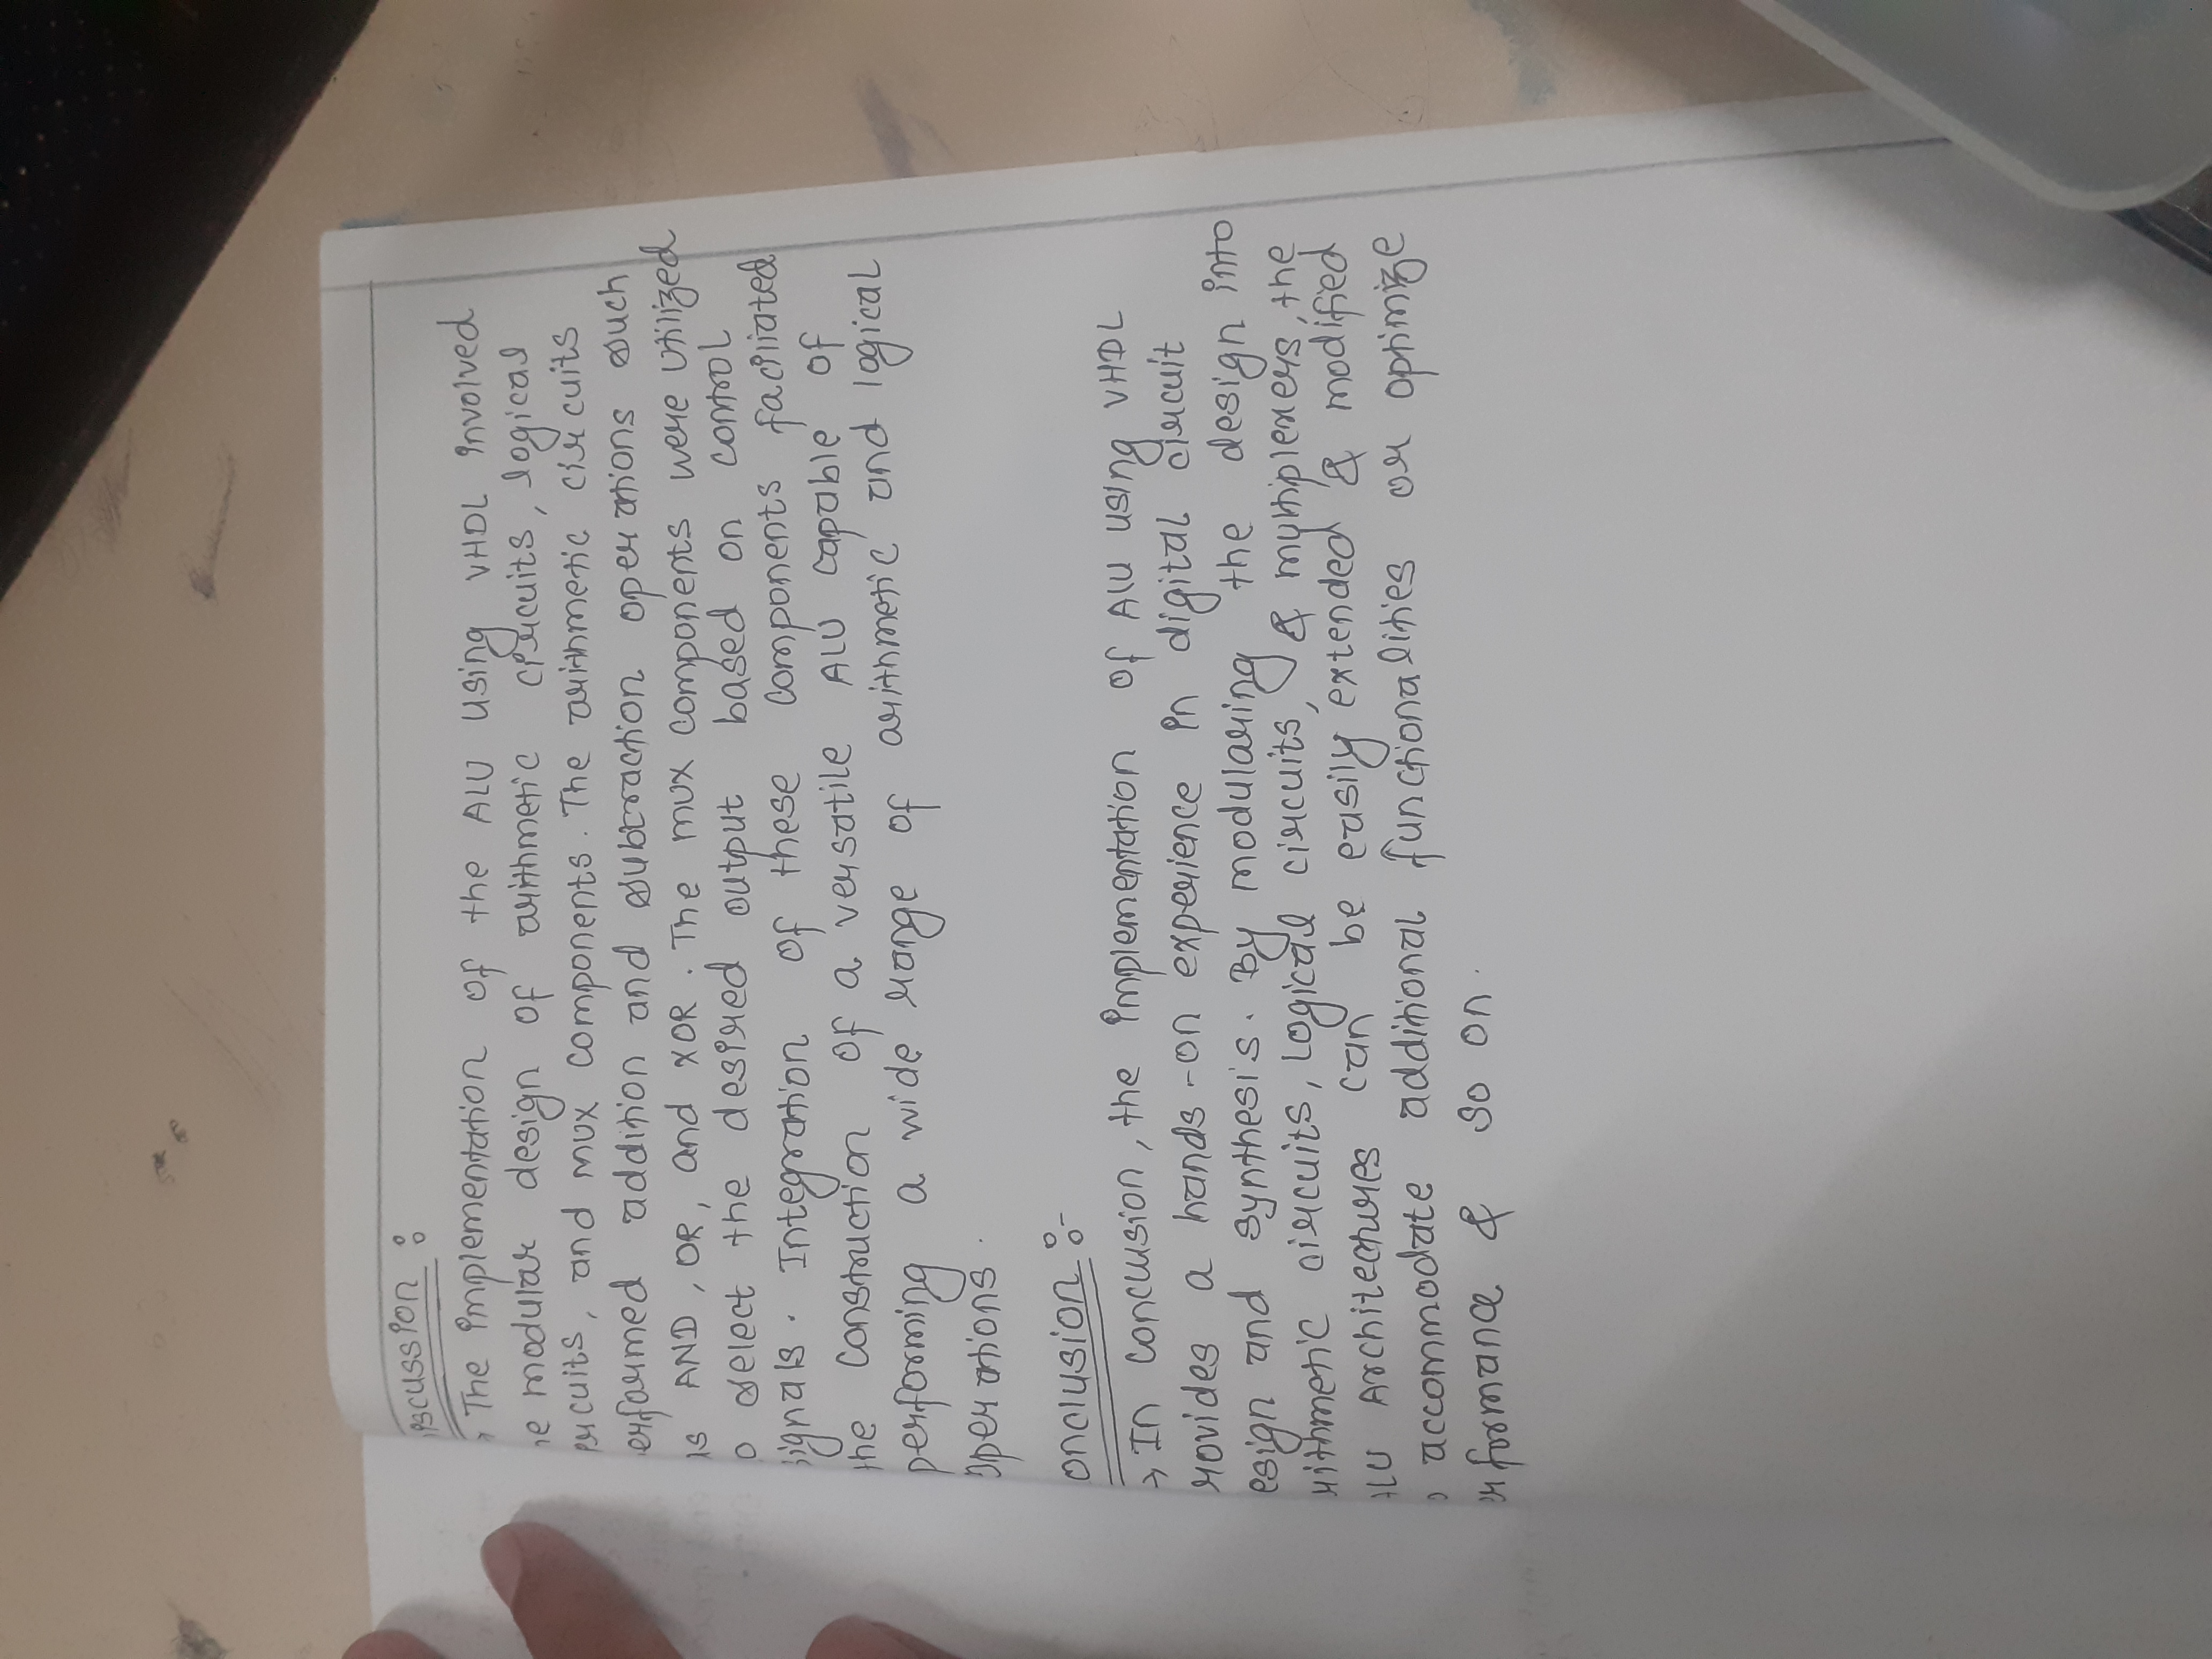 iscussion :
→ The implementation of the ALU using VHDL involved
he modular design of arithmetic circuits, logical
ircuits, and mux components. The arithmetic circuits
erformed addition and subtraction operations such
as AND, OR, and XOR. The mux components were utilized
o select the desired output based on control
ignals. Integration of these components faciliated
the construction of a versatile ALU capable of
performing a wide range of arithmetic and logical
operations.
onclusion :-
→ In conclusion, the implementation of ALU using VHDL
rovides a hands-on experience in digital circuit
esign and synthesis. By modularing the design into
rithmetic circuits, logical circuits, & multiplexers, the
ALU Architectures can be easily extended & modified
o accommodate additional functionalities or optimize
erformance & so on.